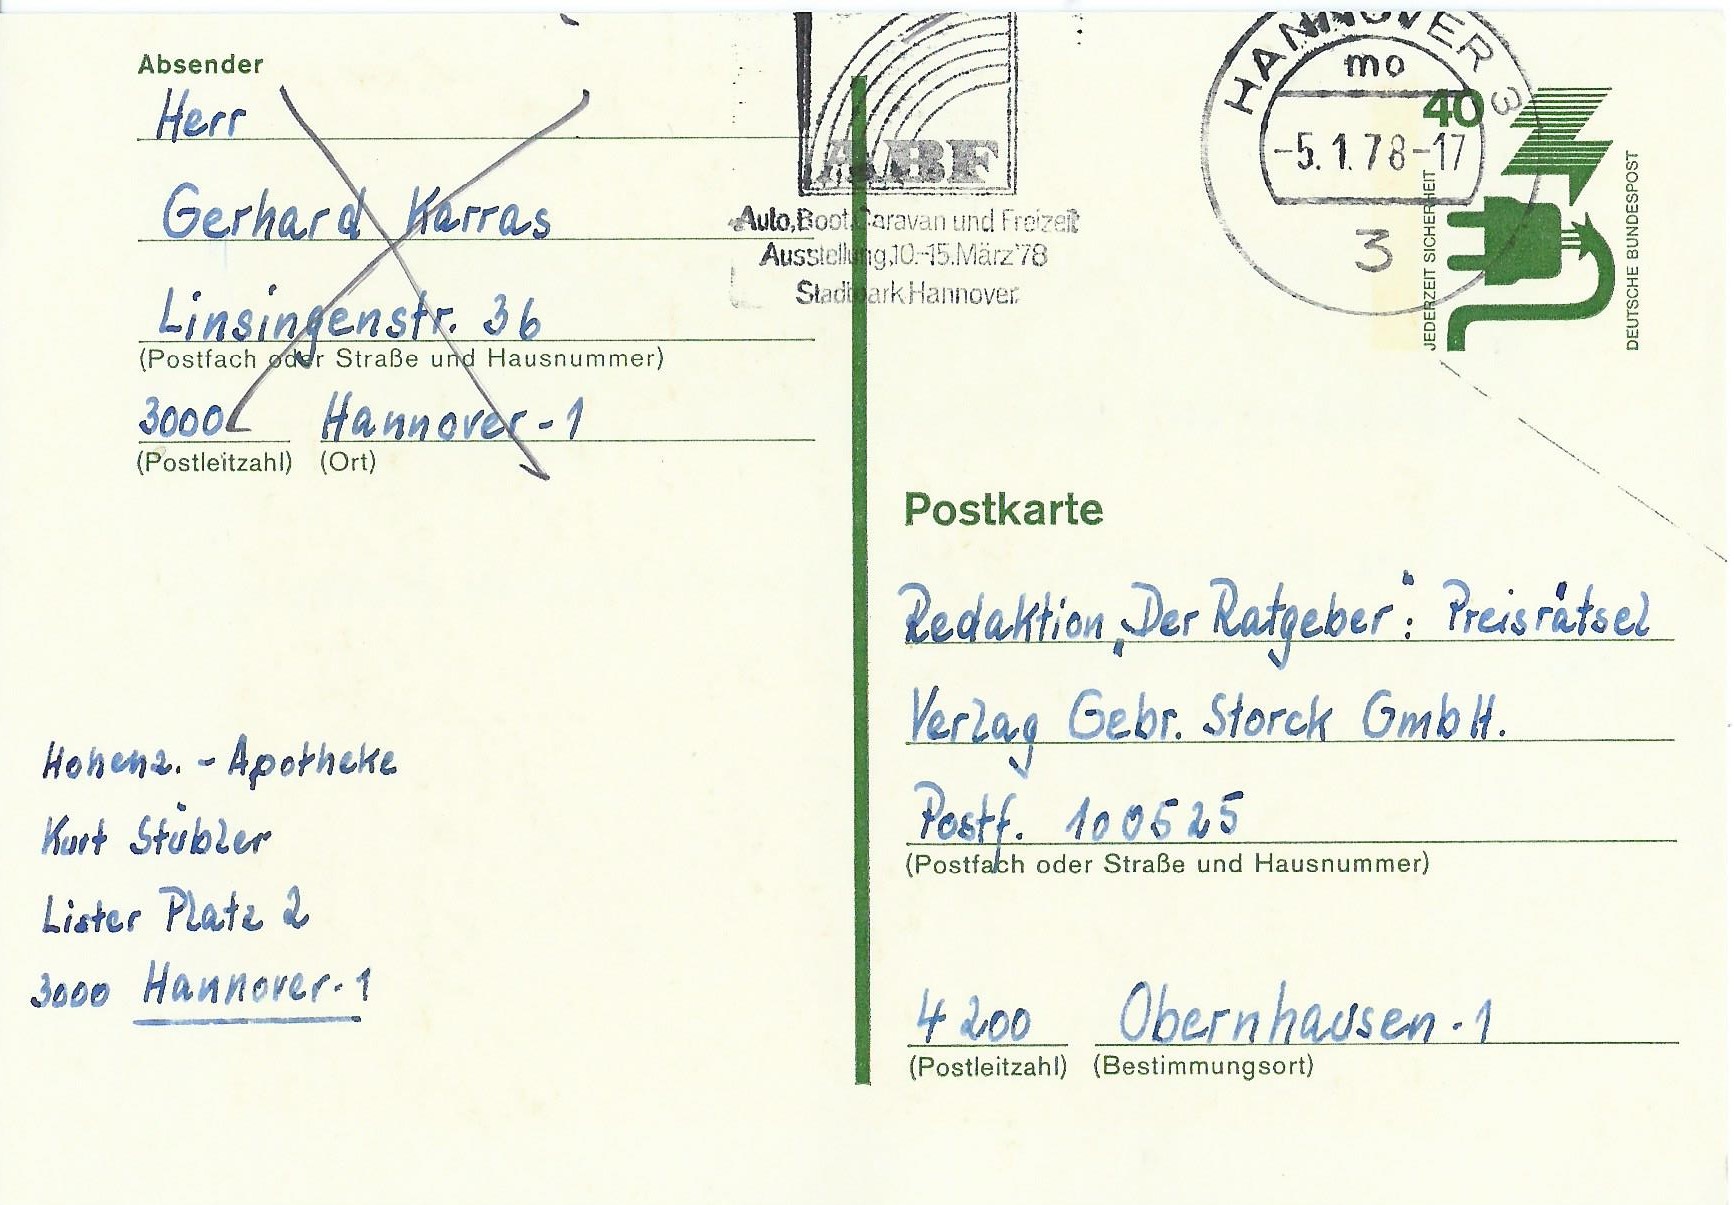 Absender
Herr
Gerhard Karras
Linsingenstr. 36
(Postfach oder Straße und Hausnummer)
3000 Hannover-1
(Postleitzahl) (Ort)
Hohenz. - Apotheke
Kurt Stübler
Lister Platz 2
3000 Hannover-1
ABF
Auto, Boot, Caravan und Freizeit
Ausstellung, 10.-15. März '78
Stadtpark Hannover
HANNOVER 3
mo
-5.1.78-17
3
40
JEDERZEIT SICHERHEIT
DEUTSCHE BUNDESPOST
Postkarte
Redaktion „Der Ratgeber“: Preisrätsel
Verlag Gebr. Storck GmbH.
Postf. 100525
(Postfach oder Straße und Hausnummer)
4200 Obernhausen-1
(Postleitzahl) (Bestimmungsort)